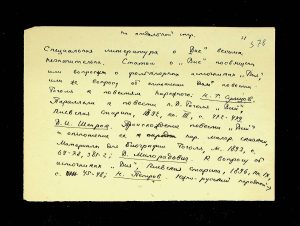 на отдельной стр.
578
Специальная литература о „Вие" весьма
незначительна. Статьи о „Вие" посвящены
или вопросу о фольклорных источниках „Вия",
или же вопросу об отношении повести
Гоголя к повестям Нарежного: Н. Ф. Сумцов.
Параллели к повести Н. В. Гоголя „Вий".
Киевская старина, 1892, кн. III, с. 472-479
В. И. Шенрок.
повести „Вий"
и отношение ее к народн.
Материалы для биографии Гоголя, М. 1893, с.
69-78, В. Милорадович. К вопросу об
источниках „Вия", Киевская старина, 1896, кн. IX,
с. 45-48; Н. Петров. Южно-русский народный